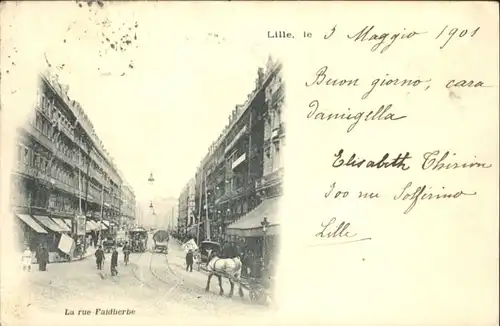 Lille, le 3 Maggio 1901
Buon giorno, cara
damigella
Elisabeth Thirion
100 rue Solferino
Lille
La rue Faidherbe